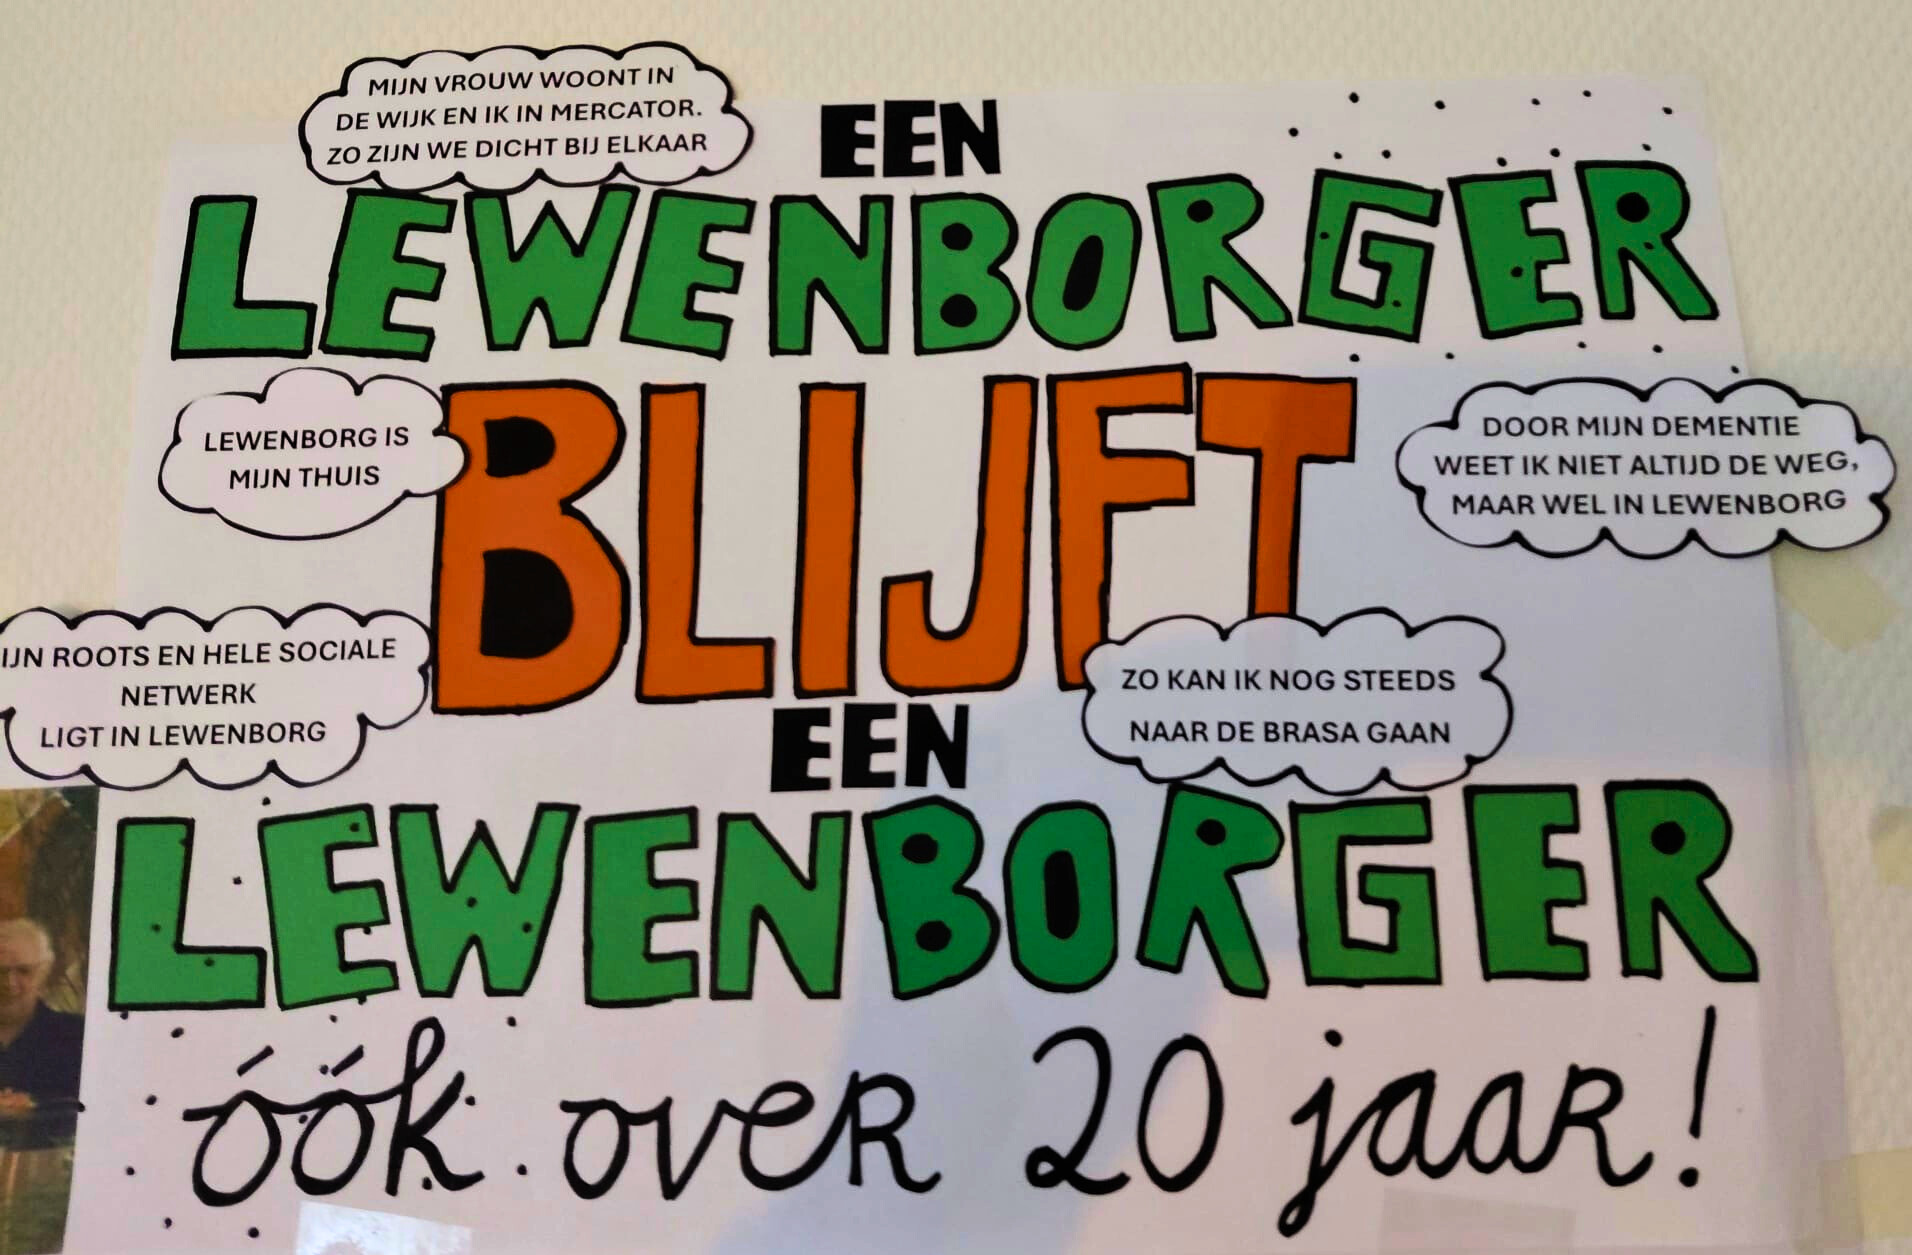 MIJN VROUW WOONT IN
DE WIJK EN IK IN MERCATOR.
ZO ZIJN WE DICHT BIJ ELKAAR
EEN
LEWENBORGER
BLIJFT
LEWENBORG IS
MIJN THUIS
DOOR MIJN DEMENTIE
WEET IK NIET ALTIJD DE WEG,
MAAR WEL IN LEWENBORG
IJN ROOTS EN HELE SOCIALE
NETWERK
LIGT IN LEWENBORG
ZO KAN IK NOG STEEDS
NAAR DE BRASA GAAN
EEN
LEWENBORGER
óók over 20 jaar!